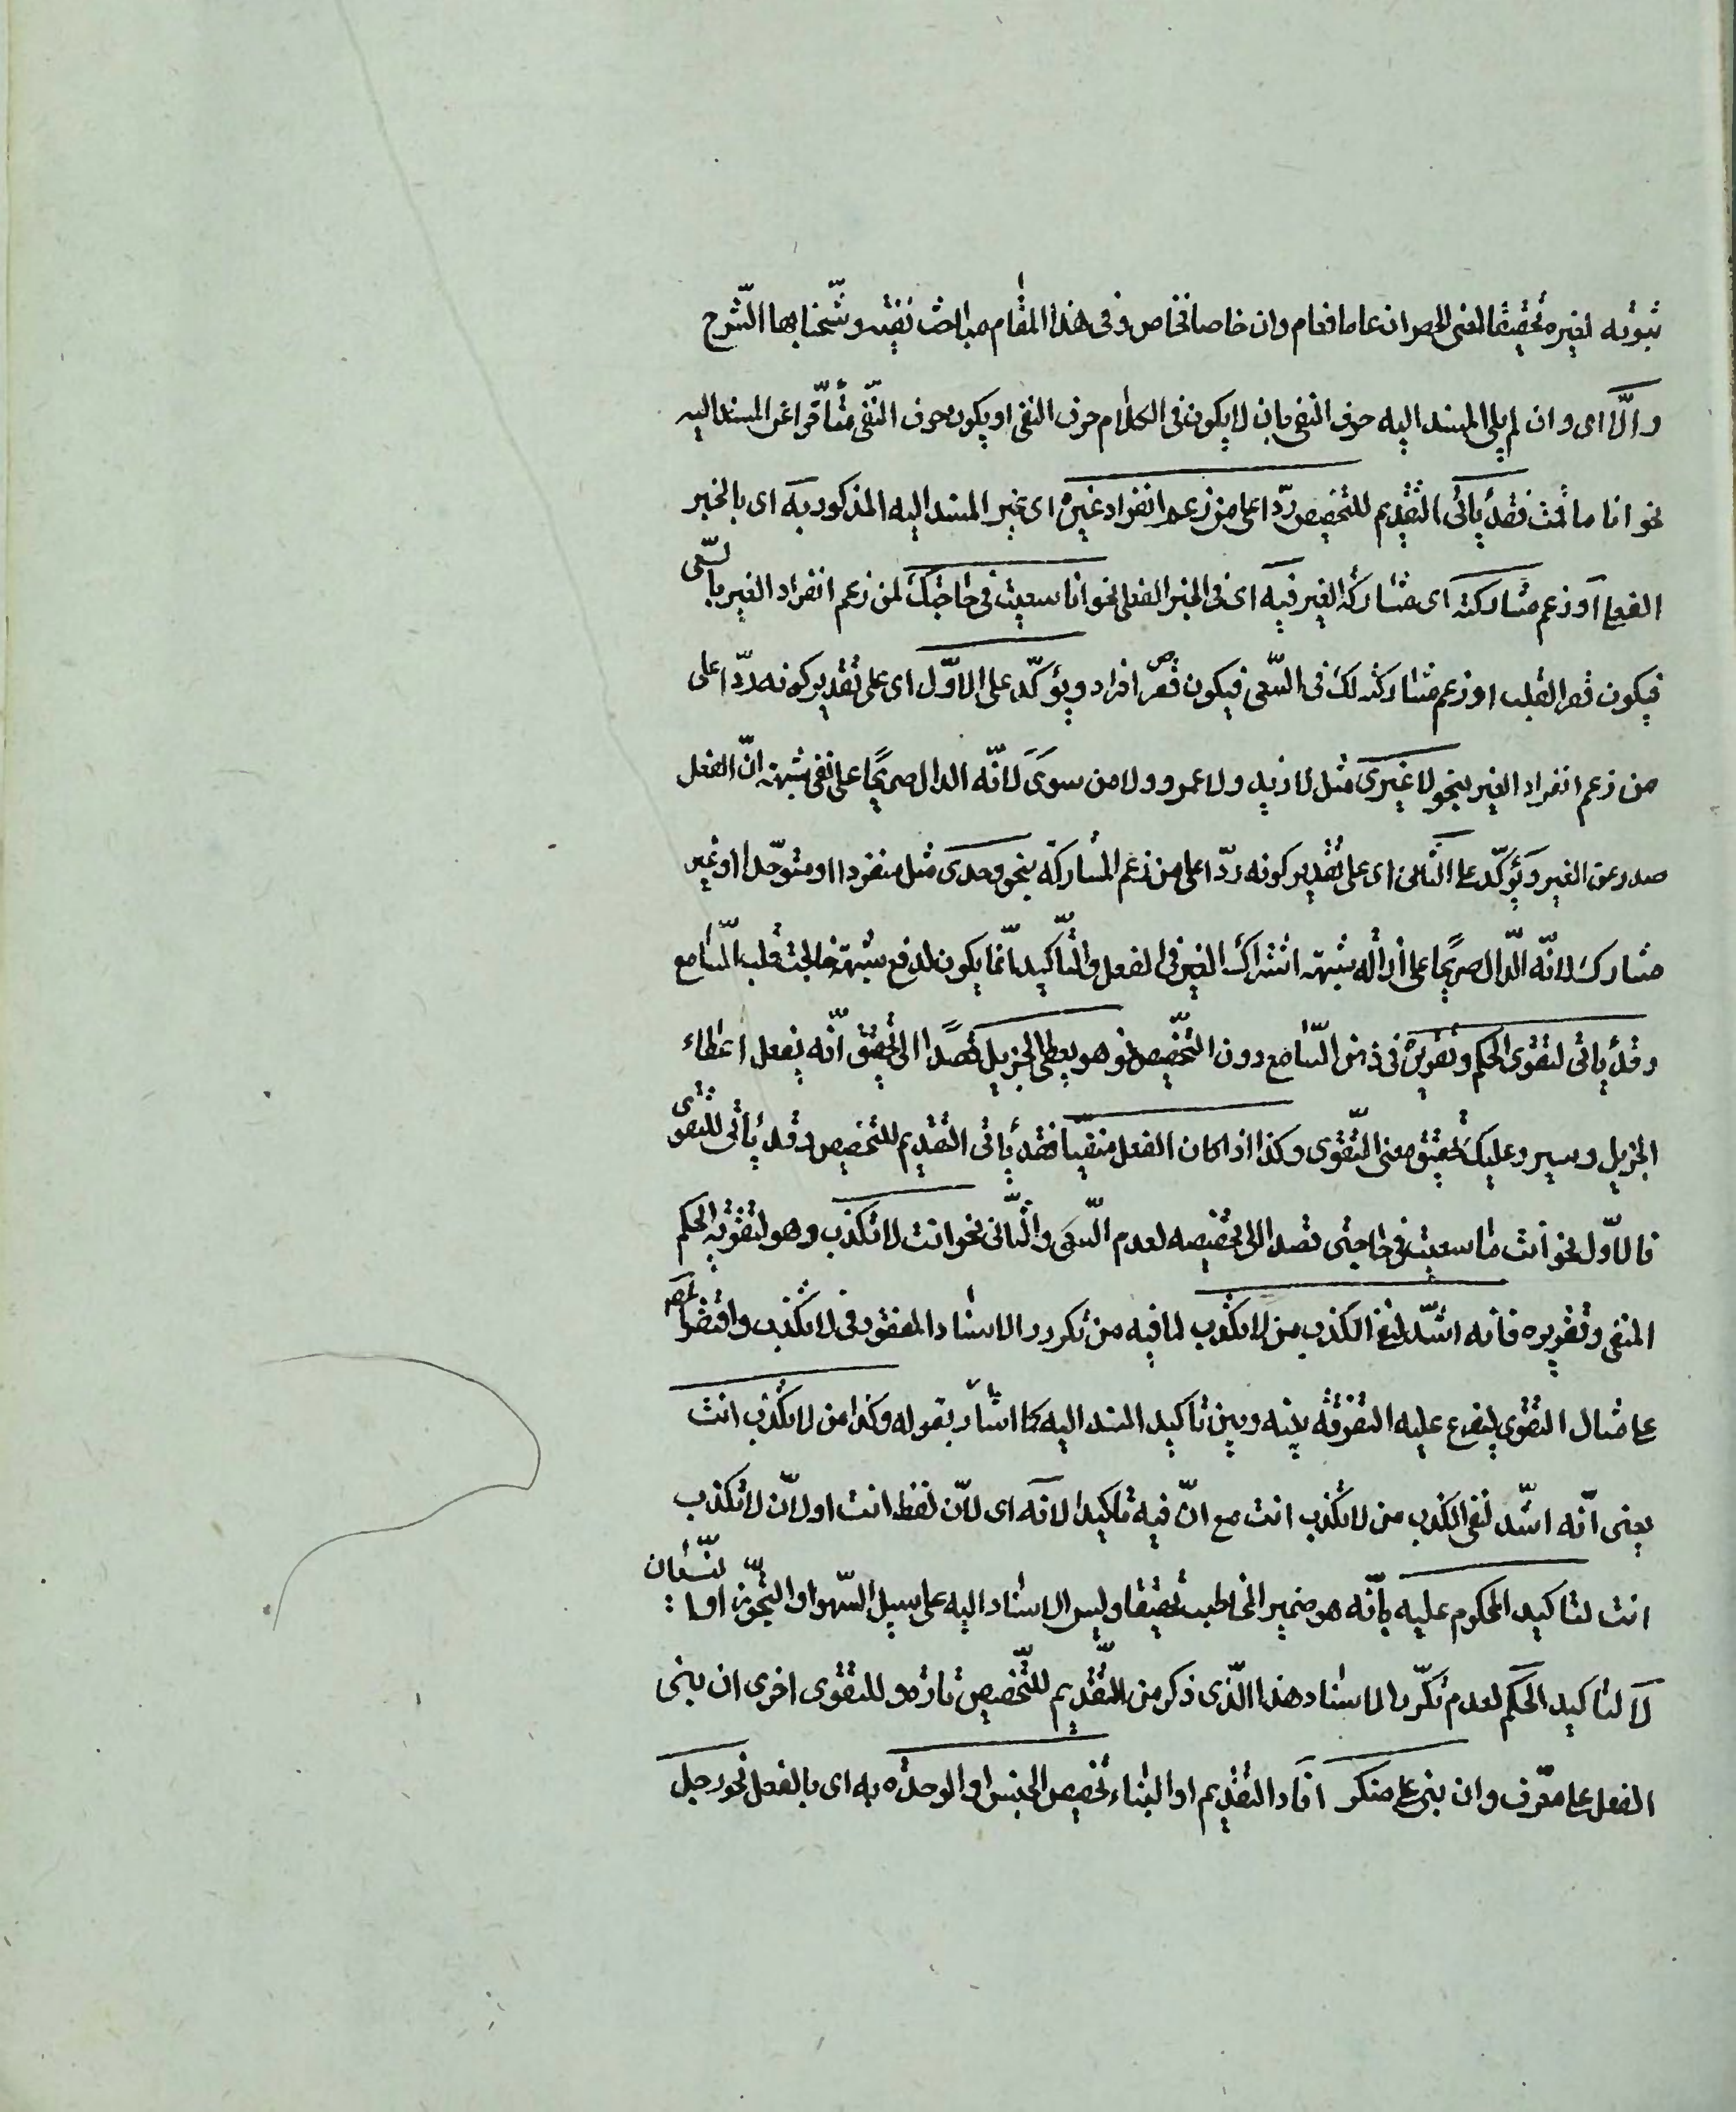 ثبوته لغيره تحقيقا لمعنى الحصر ان عاما فعام وان خاصا فخاص وفى هذا المقام مباحث نفيسة وشحنا بها الشرح
والّا اى وان لم يلى المسند اليه حرف النفى بان لا يكون فى الكلام حرف النفى او يكون حرف النّفى متأخّرا عن المسند اليه
نحو انا ما قمت فقد يأتى التقديم للتخصيص ردّا على من زعم انفراد غيره اى غير المسند اليه المذكور به اى بالخبر
الفعلى او زعم مشاركته اى مشاركة الغير فيه اى فى الخبر الفعلى نحو انا سعيت فى حاجتك لمن زعم انفراد الغير بالسّعى
فيكون قصر القلب او زعم مشاركته لك فى السّعى فيكون قصر افراد ويؤكّد على الاوّل اى على تقدير كونه ردّا على
من زعم انفراد الغير بنحو لا غيرى مثل لا زيد ولا عمرو ولا من سوى لانّه الدال صريحًا على نفى شبهة انّ الفعل
صدر عن الغير ويؤكّد على الثّانى اى على تقدير كونه ردّا على من زعم المشاركة بنحو وحدى مثل منفردا او متوحّدا او غير
مشارك لانّه الدّال صريحًا على ازالة شبهة اشتراك الغير فى الفعل والتّأكيد انّما يكون لدفع شبهة خالجت قلب السّامع
وقد يأتى لتقوى الحكم وتقريره فى ذهن السّامع دون التّخصيص نحو هو يعطى الجزيل قصدًا الى تحقيق انّه يفعل اعطاء
الجزيل وسيرد عليك تحقيق معنى التّقوى وكذا اذا كان الفعل منفيّا فقد يأتى التقديم للتخصيص وقد يأتى للتقوى
فالاوّل نحو أنت ما سعيت فى حاجتى قصدا الى تخصيصه لعدم السّعى والثّانى نحو انت لا تكذب وهو لتقوية الحكم
المنفى وتقريره فانه اشدّ لنفى الكذب من لا تكذب لما فيه من تكرر الاسناد المفقود فى لا تكذب واقتصر
على مثال التقوى ليفرع عليه التفرقة بينه وبين تأكيد المسند اليه كما اشار بقوله وكذا من لا تكذب انت
يعنى انّه اشدّ لنفى الكذب من لا تكذب انت مع انّ فيه تأكيدا لانه اى لانّ لفظ انت او لانّ لا تكذب
انت لتأكيد المحكوم عليه بأنّه هو ضمير المخاطب تحقيقا وليس الاسناد اليه على سبيل السّهو او التجوّز او النّسيان
لا لتأكيد الحكم لعدم تكرّر الاسناد هذا الّذى ذكر من التّقديم للتّخصيص تارة وللتقوى اخرى ان بنى
الفعل على معّرف وان بنى على منكر افاد التقديم او البناء تخصيص الجنس او الوحدة به اى بالفعل نحو رجل